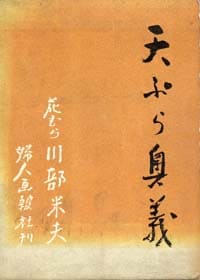 天ぷら奥義
花むら 川部米夫
婦人画報社刊